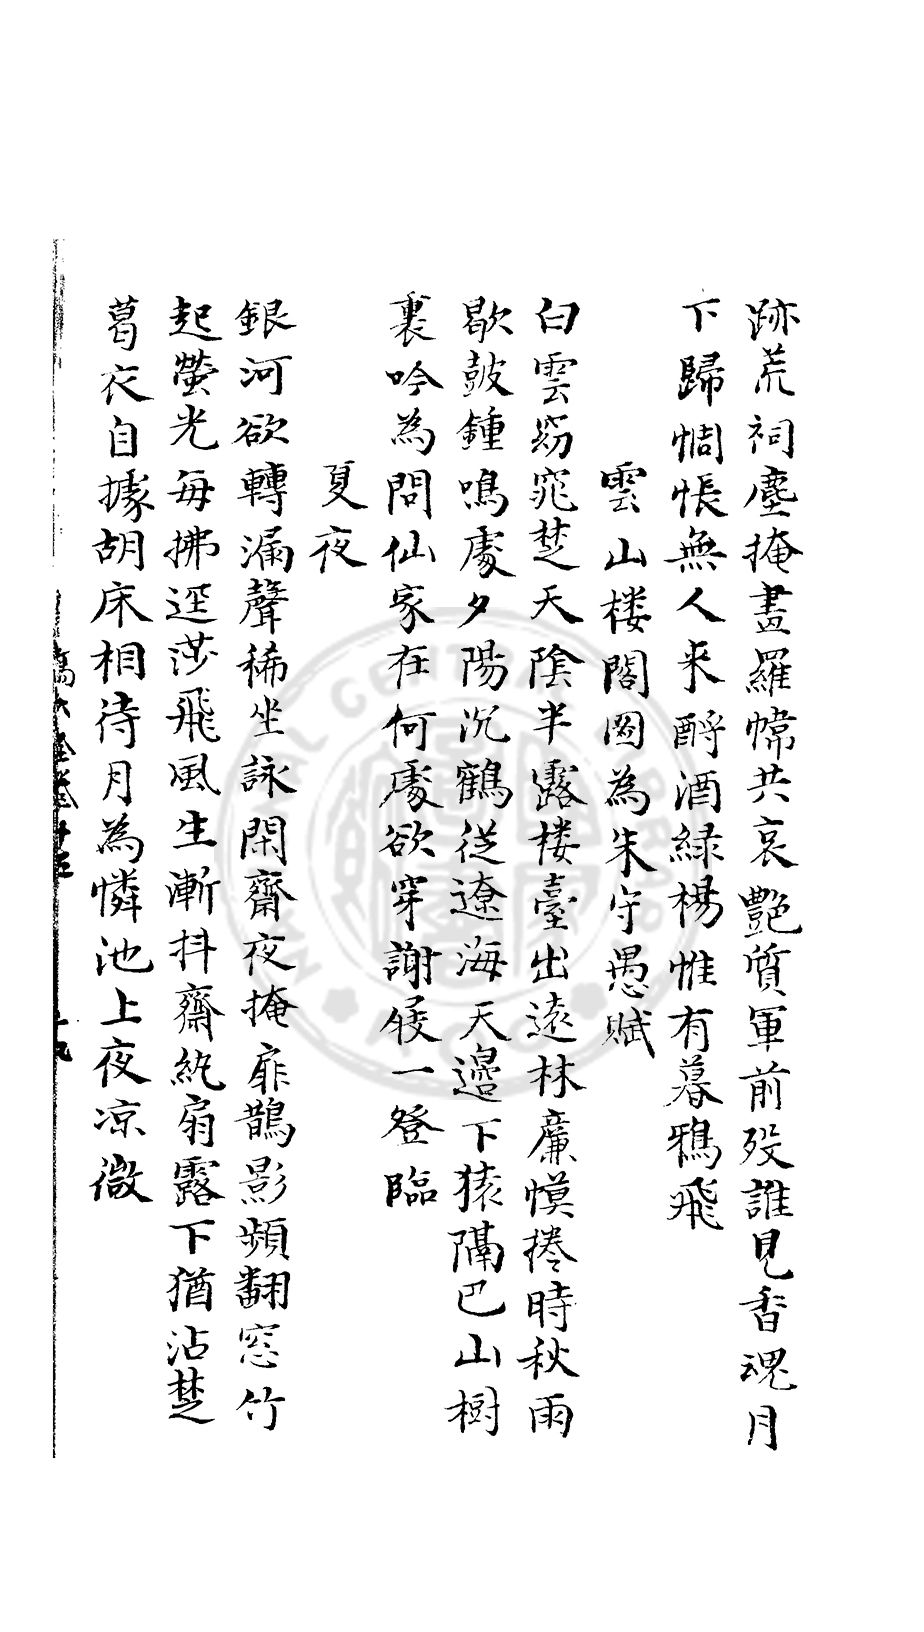 跡荒祠塵掩畫羅幃共哀艷質軍前歿誰見香魂月
下歸惆悵無人来酹酒緑楊惟有暮鴉飛
雲山楼閣圖為朱守愚賦
白雲窈窕楚天陰半露楼臺出遠林廉幙捲時秋雨
歇鼓鍾鳴處夕陽沉鶴従遼海天邉下猿隔巴山樹
裏吟為問仙家在何處欲穿謝屐一登臨
夏夜
銀河欲轉漏聲稀坐詠閑齋夜掩扉鵲影頻翻窓竹
起螢光每拂逕莎飛風生漸抖齋紈扇露下猶沾楚
葛衣自據胡床相待月為憐池上夜凉微